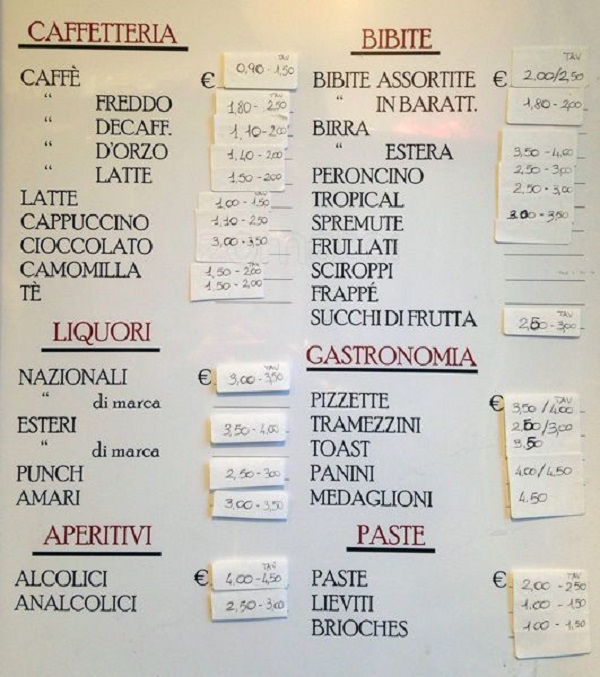 CAFFETTERIA
TAV
CAFFÈ € 0,90 - 1,50
“ FREDDO 1,80 - 2,50
“ DECAFF. 1,10 - 2,00
“ D'ORZO 1,40 - 2,00
“ LATTE 1,50 - 2,00
LATTE 1,00 - 1,50
CAPPUCCINO 1,10 - 2,50
CIOCCOLATO 3,00 - 3,50
CAMOMILLA 1,50 - 2,00
TÈ 1,50 - 2,00
LIQUORI
TAV
NAZIONALI € 3,00 - 3,50
“ di marca
ESTERI 3,50 - 4,00
“ di marca
PUNCH 2,50 - 3,00
AMARI 3,00 - 3,50
APERITIVI
TAV
ALCOLICI € 4,00 - 4,50
ANALCOLICI 2,50 - 3,00
BIBITE
TAV
BIBITE ASSORTITE € 2,00/2,50
“ IN BARATT. 1,80 - 2,00
BIRRA
“ ESTERA 3,50 - 4,00
PERONCINO 2,50 - 3,00
TROPICAL 2,50 - 3,00
SPREMUTE 3,00 - 3,50
FRULLATI
SCIROPPI
FRAPPÉ
TAV
SUCCHI DI FRUTTA 2,50 - 3,00
GASTRONOMIA
TAV
PIZZETTE € 3,50 / 4,00
TRAMEZZINI 2,50/3,00
TOAST 3.50
PANINI 4,00/4,50
MEDAGLIONI 4.50
PASTE
TAV
PASTE € 2,00 - 2,50
LIEVITI 1.00 - 1,50
BRIOCHES 1,00 - 1,50